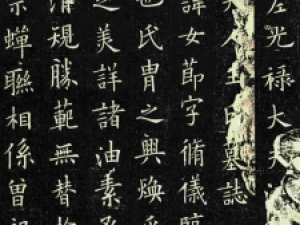 左光禄大夫
夫人王氏墓誌
諱女節字脩儀
也氏胄之興煥
之美詳諸油素
清規勝範無替
蟬聯相係曾